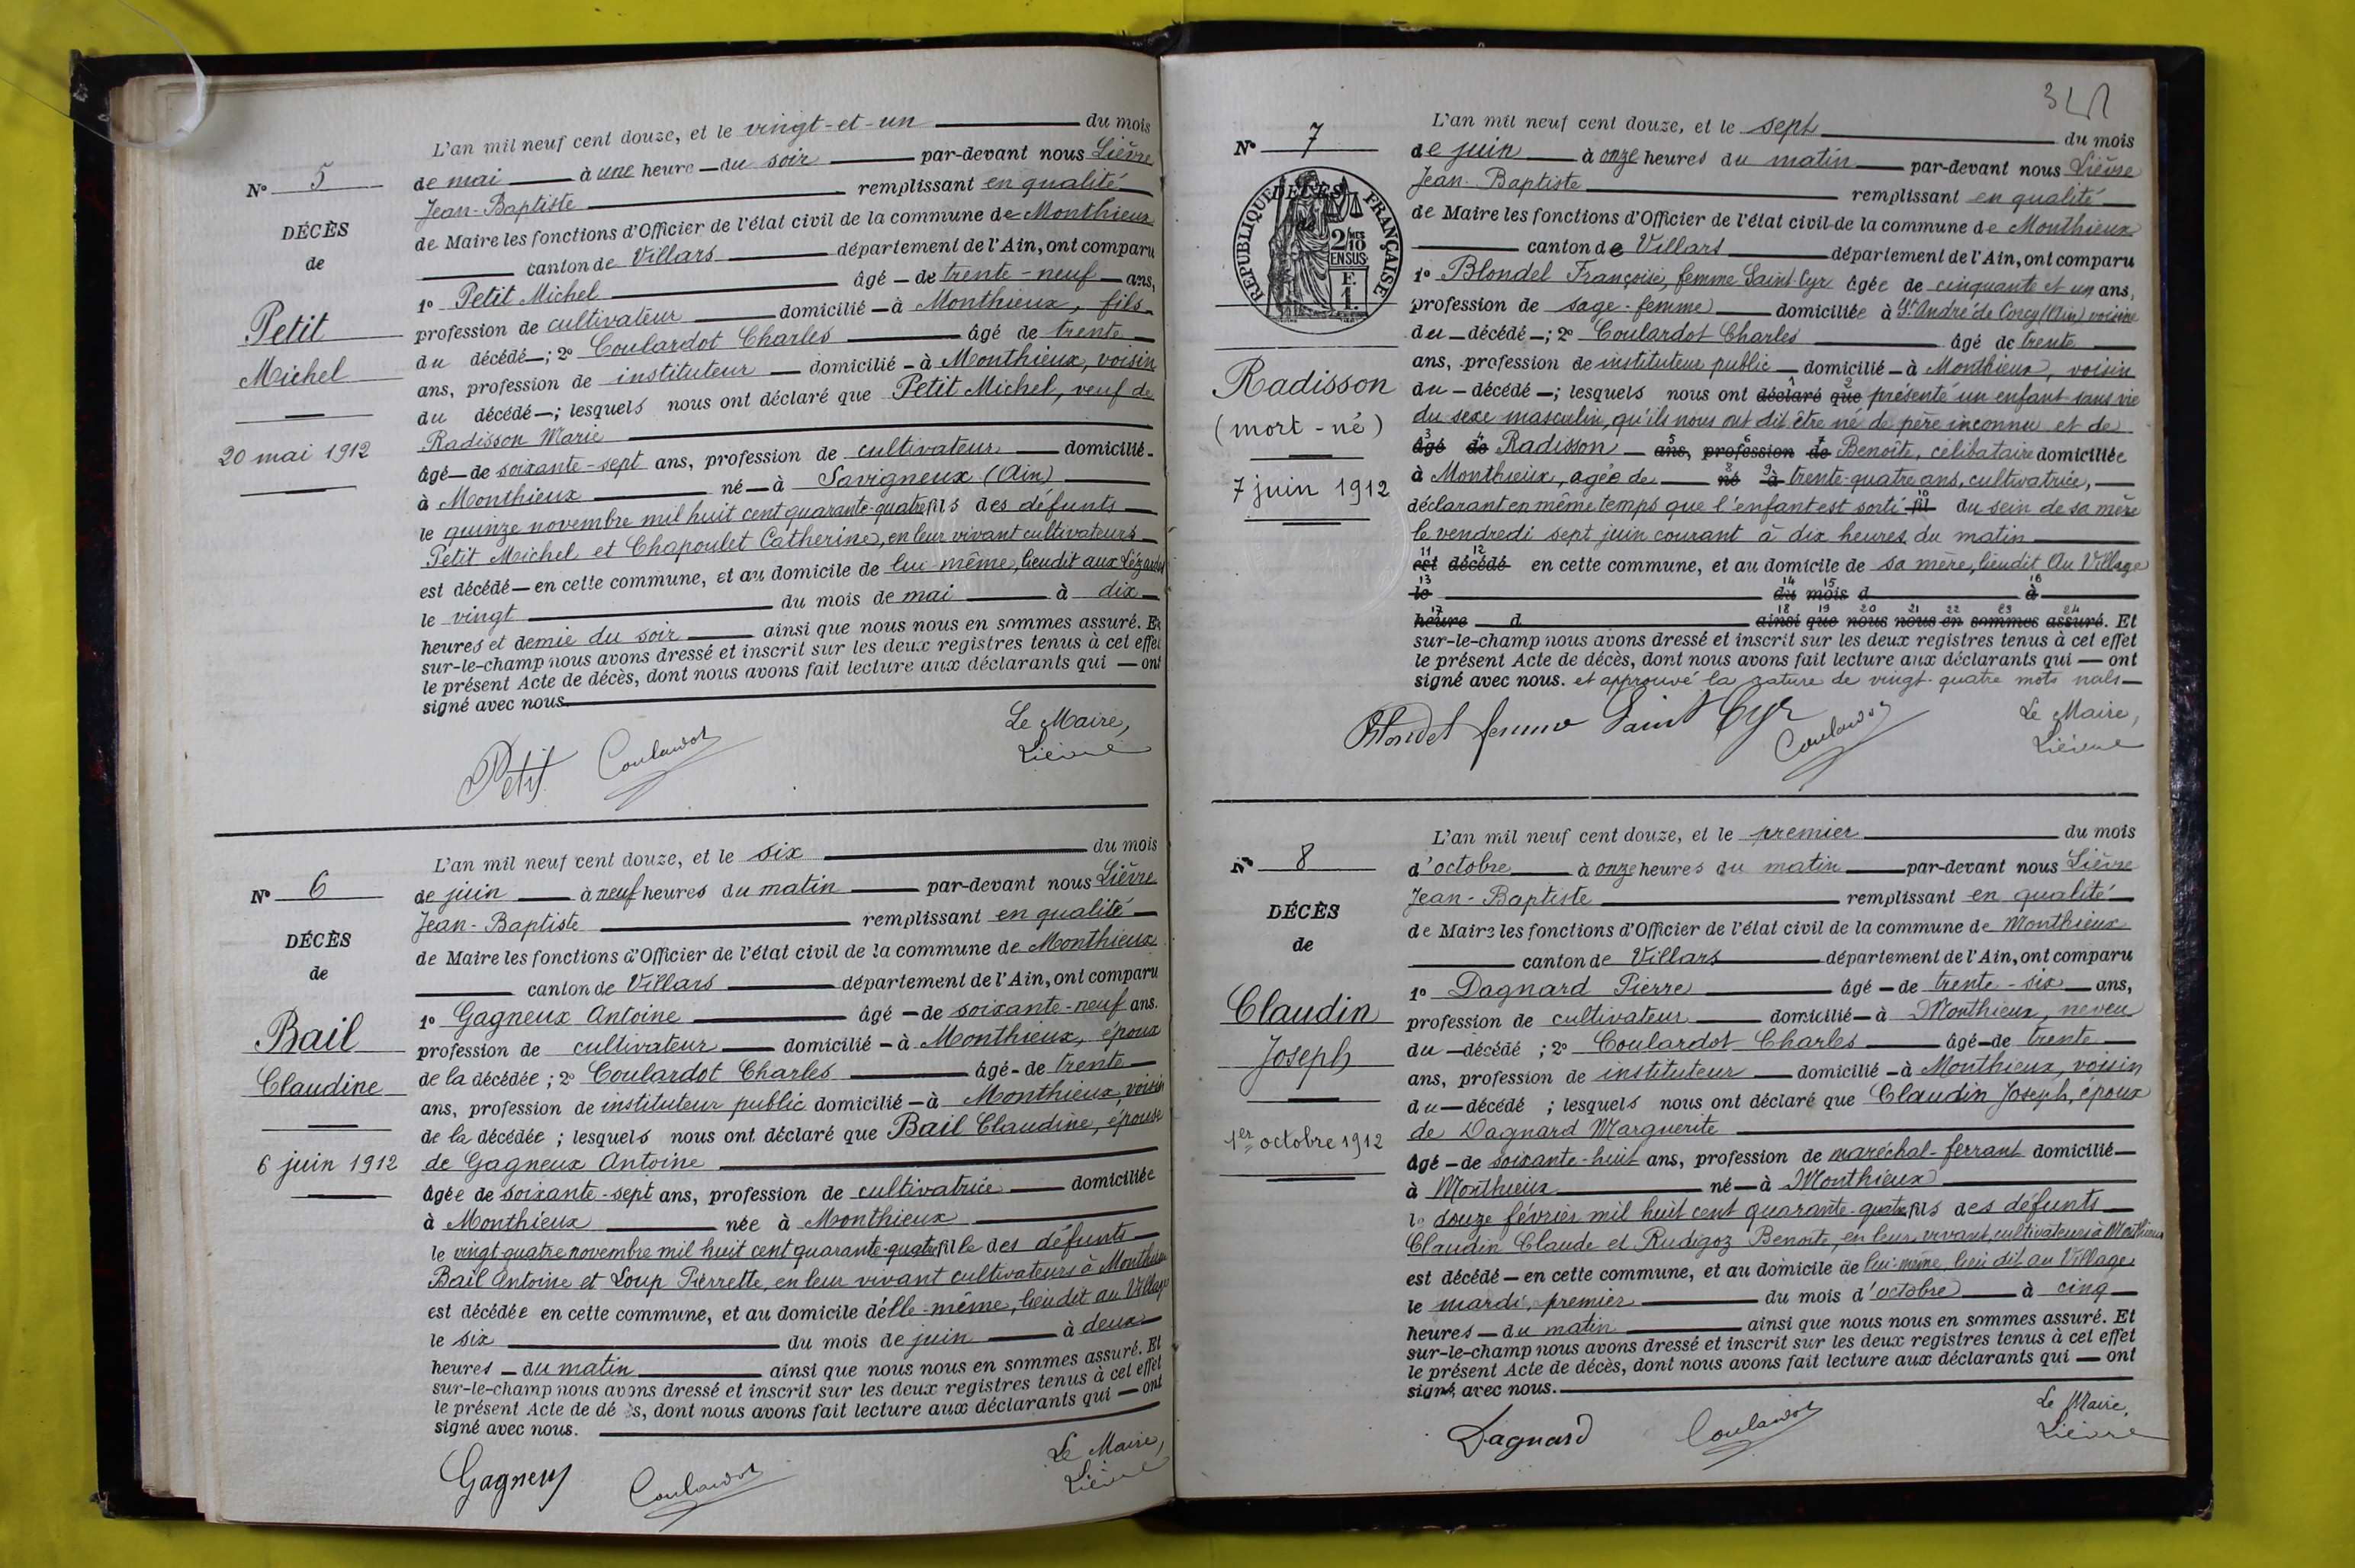 L'an mil neuf cent douze, et le vingt-et-un du mois
N° 5
de mai à une heure du soir par-devant nous Lièvre
Jean-Baptiste remplissant en qualité
DÉCÈS
de Maire les fonctions d'Officier de l'état civil de la commune de Monthieux
de
canton de Villars département de l'Ain, ont comparu
1° Petit Michel âgé de trente-neuf ans,
Petit
profession de cultivateur domicilié à Monthieux, fils
du décédé ; 2° Coulardot Charles âgé de trente
Michel
ans, profession de instituteur domicilié à Monthieux, voisin
du décédé ; lesquels nous ont déclaré que Petit Michel, veuf de
Radisson Marie
20 mai 1912
âgé de soixante-sept ans, profession de cultivateur domicilié
à Monthieux né à Savigneux (Ain)
le quinze novembre mil huit cent quarante-quatre fils des défunts
Petit Michel et Chapoulet Catherine, en leur vivant cultivateurs
est décédé en cette commune, et au domicile de lui-même, lieudit aux Lézardes
le vingt du mois de mai à dix
heures et demie du soir ainsi que nous nous en sommes assuré. Et
sur-le-champ nous avons dressé et inscrit sur les deux registres tenus à cet effet
le présent Acte de décès, dont nous avons fait lecture aux déclarants qui ont
signé avec nous.
Le Maire,
Petit Coulardot Lièvre
L'an mil neuf cent douze, et le six du mois
N° 6
de juin à neuf heures du matin par-devant nous Lièvre
Jean-Baptiste remplissant en qualité
DÉCÈS
de Maire les fonctions d'Officier de l'état civil de la commune de Monthieux
de
canton de Villars département de l'Ain, ont comparu
1° Gagneux Antoine âgé de soixante-neuf ans.
Bail
profession de cultivateur domicilié à Monthieux, époux
de la décédée ; 2° Coulardot Charles âgé de trente
Claudine
ans, profession de instituteur public domicilié à Monthieux, voisin
de la décédée ; lesquels nous ont déclaré que Bail Claudine, épouse
6 juin 1912
de Gagneux Antoine
âgée de soixante-sept ans, profession de cultivatrice domiciliée
à Monthieux née à Monthieux
le vingt-quatre novembre mil huit cent quarante-quatre fille des défunts
Bail Antoine et Loup Pierrette, en leur vivant cultivateurs à Monthieux
est décédée en cette commune, et au domicile d'elle-même, lieudit au Village
le six du mois de juin à deux
heures du matin ainsi que nous nous en sommes assuré. Et
sur-le-champ nous avons dressé et inscrit sur les deux registres tenus à cet effet
le présent Acte de dé s, dont nous avons fait lecture aux déclarants qui ont
signé avec nous.
Le Maire,
Gagneux Coulardot Lièvre
L'an mil neuf cent douze, et le sept du mois
N° 7
de juin à onze heures du matin par-devant nous Lièvre
Jean-Baptiste remplissant en qualité
DÉCÈS
de
RÉPUBLIQUE FRANÇAISE
2/10 MES EN SUS
F. 1.
de Maire les fonctions d'Officier de l'état civil de la commune de Monthieux
canton de Villars département de l'Ain, ont comparu
1° Blondel Françoise, femme Saint-Cyr âgée de cinquante et un ans,
profession de sage-femme domiciliée à St André de Corcy (Ain) voisine
du décédé ; 2° Coulardot Charles âgé de trente
ans, profession de instituteur public domicilié à Monthieux, voisin
Radisson
du décédé ; lesquels nous ont déclaré que présenté un enfant sans vie
(mort-né)
du sexe masculin, qu'ils nous ont dit être né de père inconnu et de
âgé de Radisson ans, profession de Benoîte, célibataire domiciliée
7 juin 1912
à Monthieux, agée de né à trente-quatre ans, cultivatrice,
déclarant en même temps que l'enfant est sorti fil du sein de sa mère
le vendredi sept juin courant à dix heures du matin
11 12
est décédé en cette commune, et au domicile de sa mère, lieudit Au Village
13 14 15 16
le du mois d à
17 18 19 20 21 22 23 24
heure d ainsi que nous nous en sommes assuré. Et
sur-le-champ nous avons dressé et inscrit sur les deux registres tenus à cet effet
le présent Acte de décès, dont nous avons fait lecture aux déclarants qui ont
signé avec nous. et approuvé la rature de vingt-quatre mots nuls
Le Maire,
Blondel femme Saint Cyr Coulardot Lièvre
L'an mil neuf cent douze, et le premier du mois
N° 8
d'octobre à onze heures du matin par-devant nous Lièvre
Jean-Baptiste remplissant en qualité
DÉCÈS
de Maire les fonctions d'Officier de l'état civil de la commune de Monthieux
de
canton de Villars département de l'Ain, ont comparu
1° Dagnard Pierre âgé de trente-six ans,
Claudin
profession de cultivateur domicilié à Monthieux, neveu
du décédé ; 2° Coulardot Charles âgé de trente
Joseph
ans, profession de instituteur domicilié à Monthieux, voisin
du décédé ; lesquels nous ont déclaré que Claudin Joseph, époux
de Dagnard Marguerite
1er octobre 1912
âgé de soixante-huit ans, profession de maréchal-ferrant domicilié
à Monthieux né à Monthieux
le douze février mil huit cent quarante-quatre fils des défunts
Claudin Claude et Rudigoz Benoite, en leur vivant cultivateurs à Monthieux
est décédé en cette commune, et au domicile de lui-même, lieu dit au Village
le mardi, premier du mois d'octobre à cinq
heures du matin ainsi que nous nous en sommes assuré. Et
sur-le-champ nous avons dressé et inscrit sur les deux registres tenus à cet effet
le présent Acte de décès, dont nous avons fait lecture aux déclarants qui ont
signé avec nous.
Le Maire,
Dagnard Coulardot Lièvre